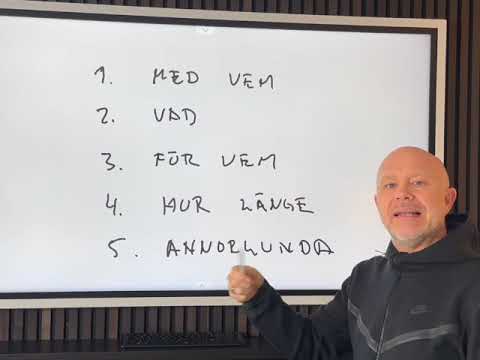 1. MED VEM
2. VAD
3. FÖR VEM
4. HUR LÄNGE
5. ANNORLUNDA